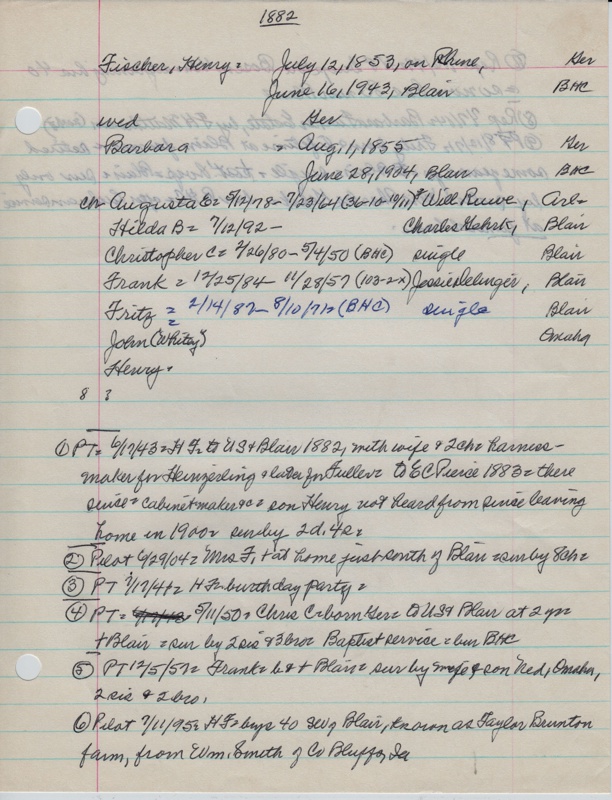 1882
Fischer, Henry = July 12, 1853, on Rhine, Ger
June 16, 1943, Blair BHC
wed Ger
Barbara = Aug. 1, 1855 Ger
June 28, 1904, Blair BHC
ch- Augusta = 5/12/78 - 7/23/64 (36-10-19/11) Will Ruwe, Arl=
Hilda B = 7/12/92 - Charles Gehrk, Blair
Christopher C = 2/26/80 - 5/4/50 (BHC) single Blair
Frank = 12/25/84 - 11/28/57 (103-2-X) Jessie Delinger, Blair
Fritz = 2/14/87 - 8/10/71= (BHC) single Blair
John (Whitey) Omaha
Henry =
8 ?
① PT= 6/17/43 = H F= to US & Blair 1882, with wife & 2ch= harness-
maker for Heinzerling & later for Fuller = to EC Pierce 1883 = there
since = cabinetmaker &c = son Henry not heard from since leaving
home in 1900= surby 2d. 4s=
② Pilot 6/29/04 = Mrs F, + at home just south of Blair = sur by 8ch=
③ PT 7/17/41= H F= birthday party =
④ PT= 5/11/50 = Chris C= born Ger= to US & Blair at 2 yr=
+ Blair = sur by 2 sis & 3 bro= Baptist service = bur BHC
⑤ PT 12/5/57= Frank = b & + Blair = sur by wife & son Ned, Omaha,
2 sis & 2 bro.
⑥ Pilot 7/11/95= H F= buys 40 SW of Blair, known as Taylor Brunton
farm, from Wm. Smith of Co Bluffs, Ia